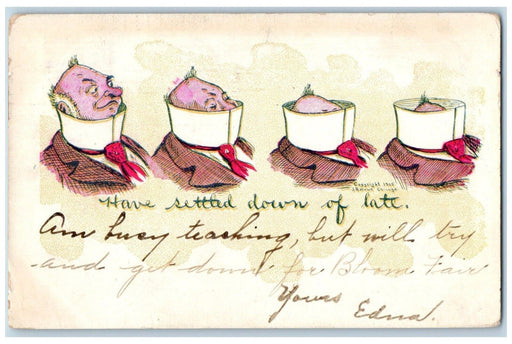 Copyright 1905
Have settled down of late.
Am busy teaching, but will try
and get down for Bloom Fair
Yours
Edna.